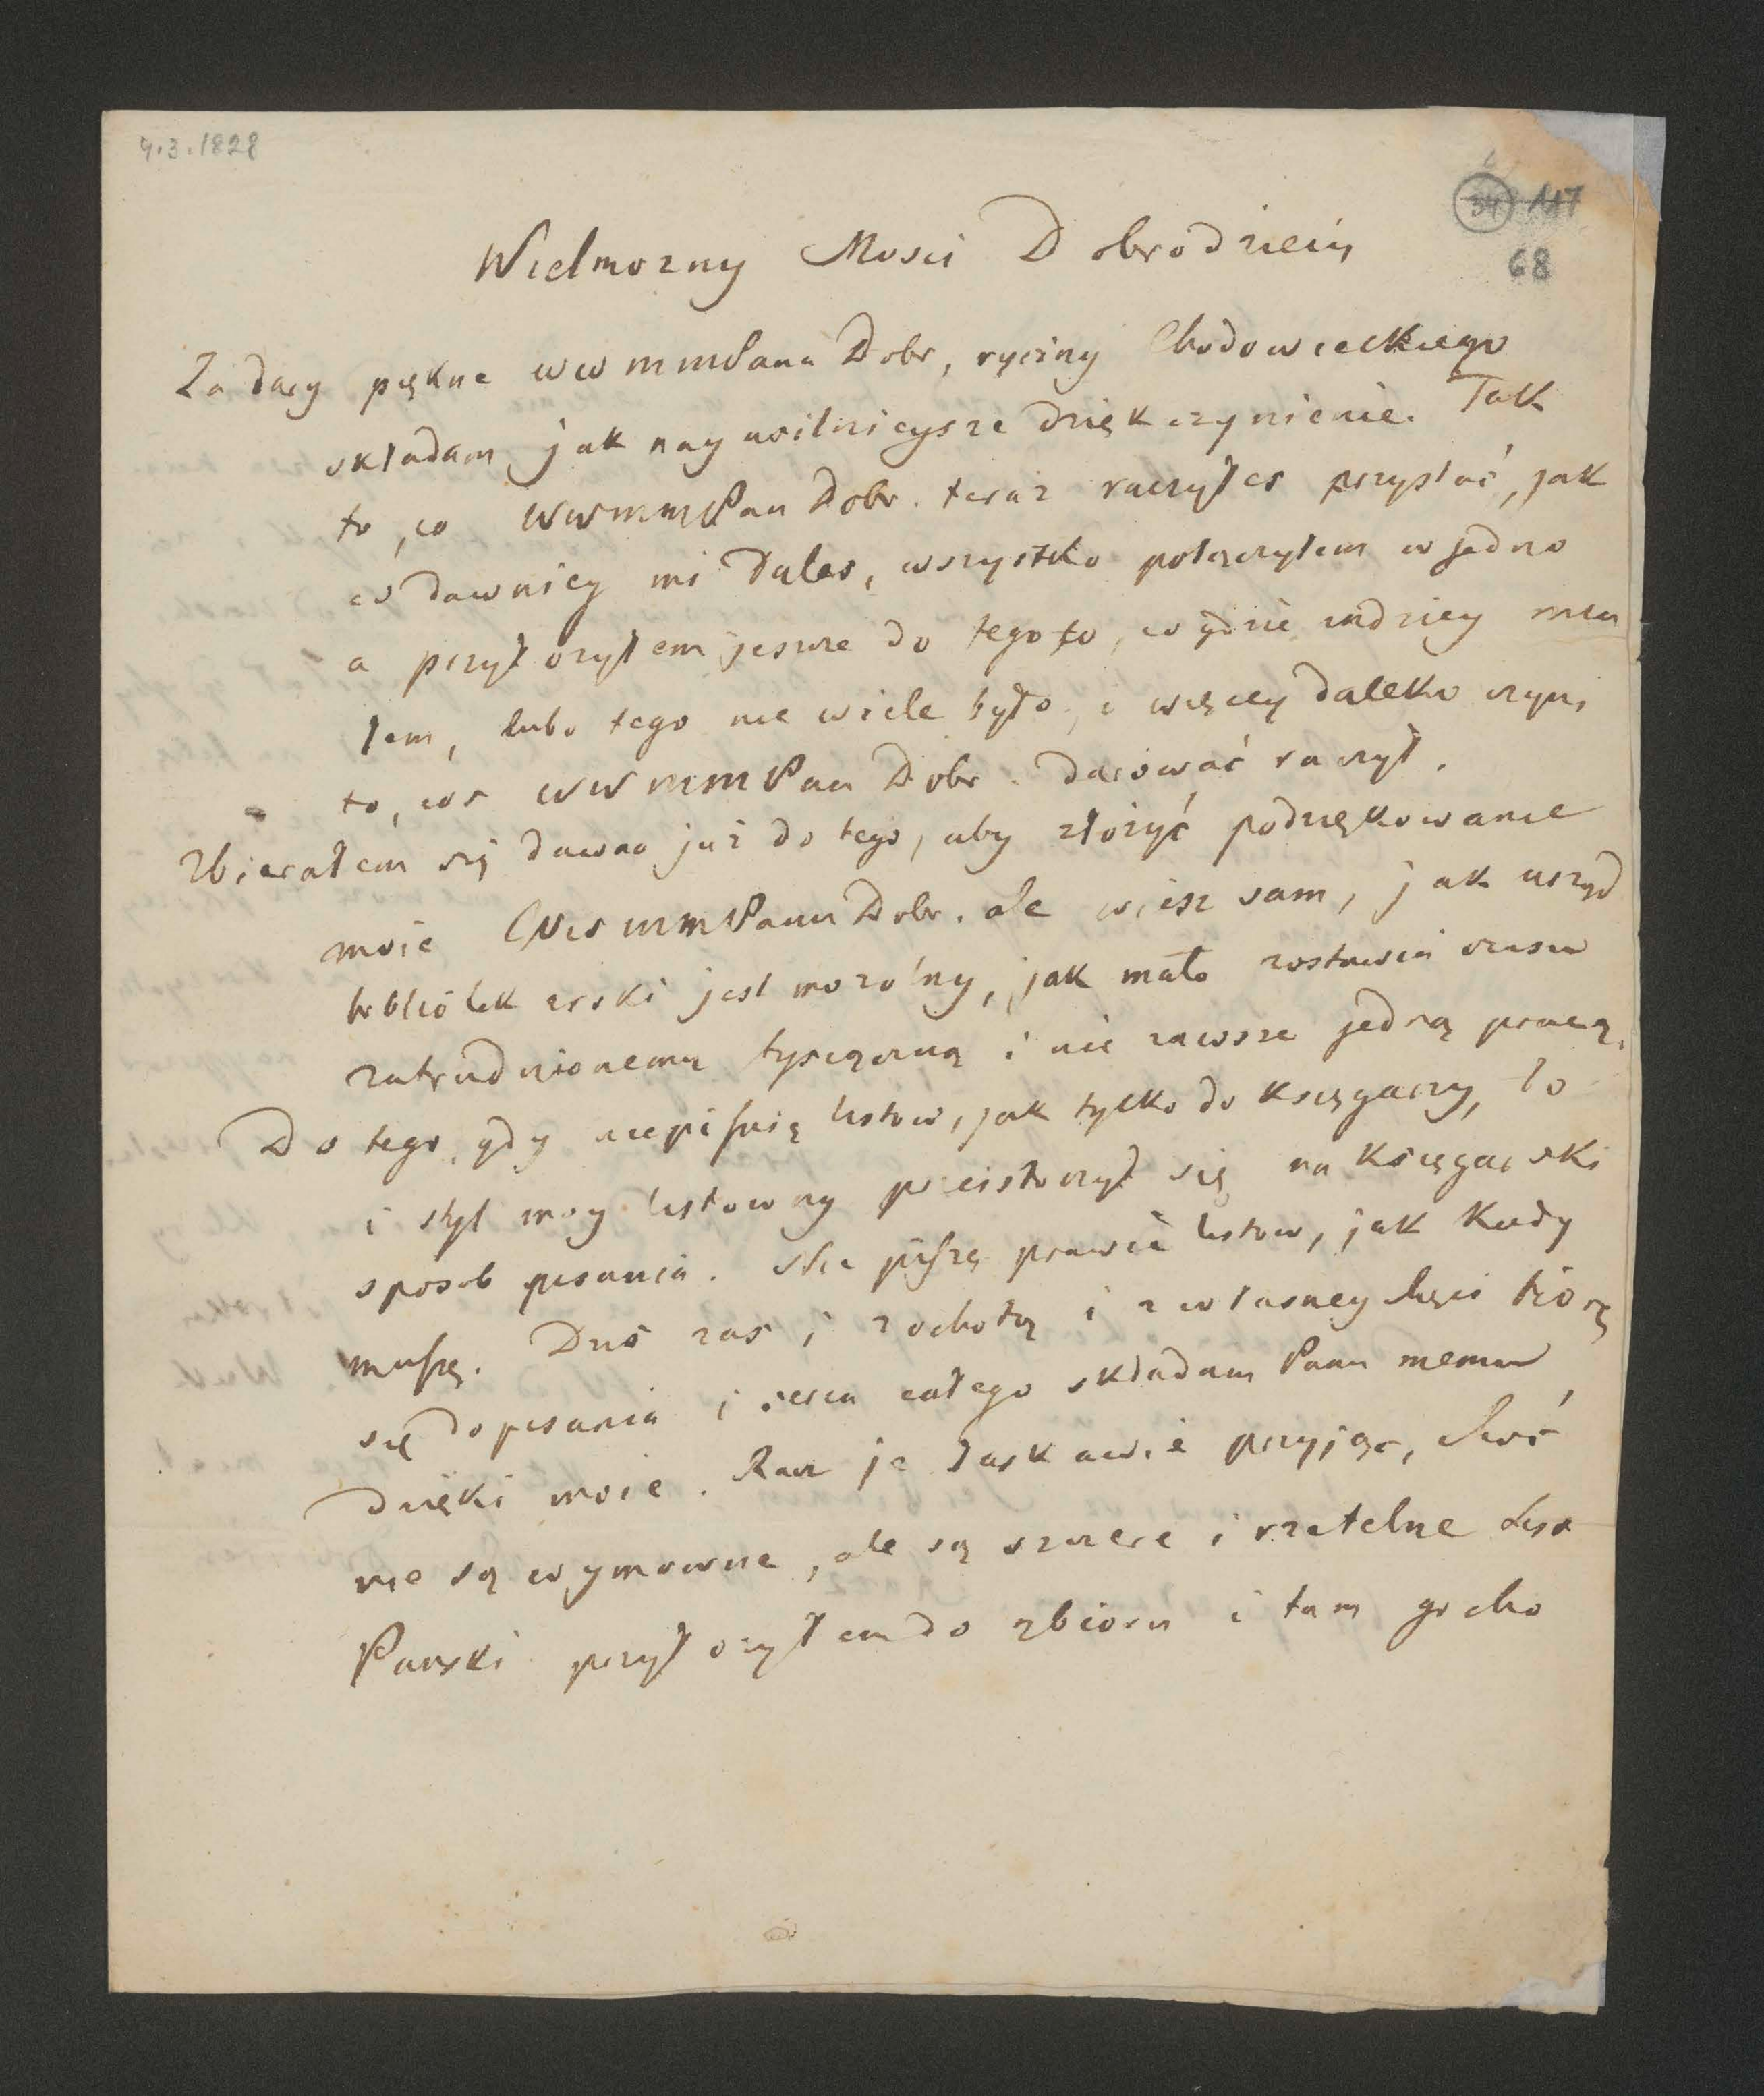 4.3.1828
34 117
68
Wielmozny Mosci Dobrodzieiu
Za dary piękne WWMMPana Dobr, ryciny Chodowieckiego
składam jak nayusilnieysze dziękczynienie. Tak
to, co WWMMPan Dobr. teraz raczyłes przysłać, jak
co dawniey mi dałes, wszystko połączyłem w jedno
a przyłozyłem jeszcze do tego to, co gdzie indziey mia
łem, lubo tego nie wiele było, i więcey daleko czyni
to, cos WWMMPan Dobr. darować raczył.
Zbierałem się dawno już do tego, aby złożyć podziękowanie
moie WWMMPanu Dobr. ale wiesz sam, jak urząd
bibliotekarski jest mozolny, jak mało zostawia czasu
zatrudnionemu tysiączną i nie zawsze jedną pracą.
Do tego, gdy nie piszę listow, jak tylko do księgarzy, to
i styl moy listowny przeistoczył się na księgarski
sposob pisania. Nie piszę prawie listow, jak kiedy
muszę. Dziś zas i z ochotą i z własney chęci biorę
się do pisania i serca całego składam Panu memu
dzięki moie. Racz je łaskawie przyjąć, choć
nie są wymowne, ale są szczere i rzetelne List
Pański przyłozyłem do zbioru i tam go cho